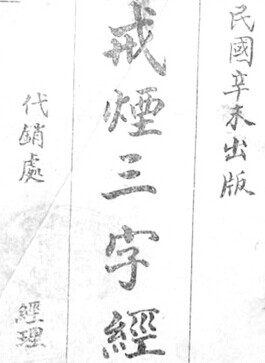 民國辛未出版
戒煙三字經
代銷處 經理